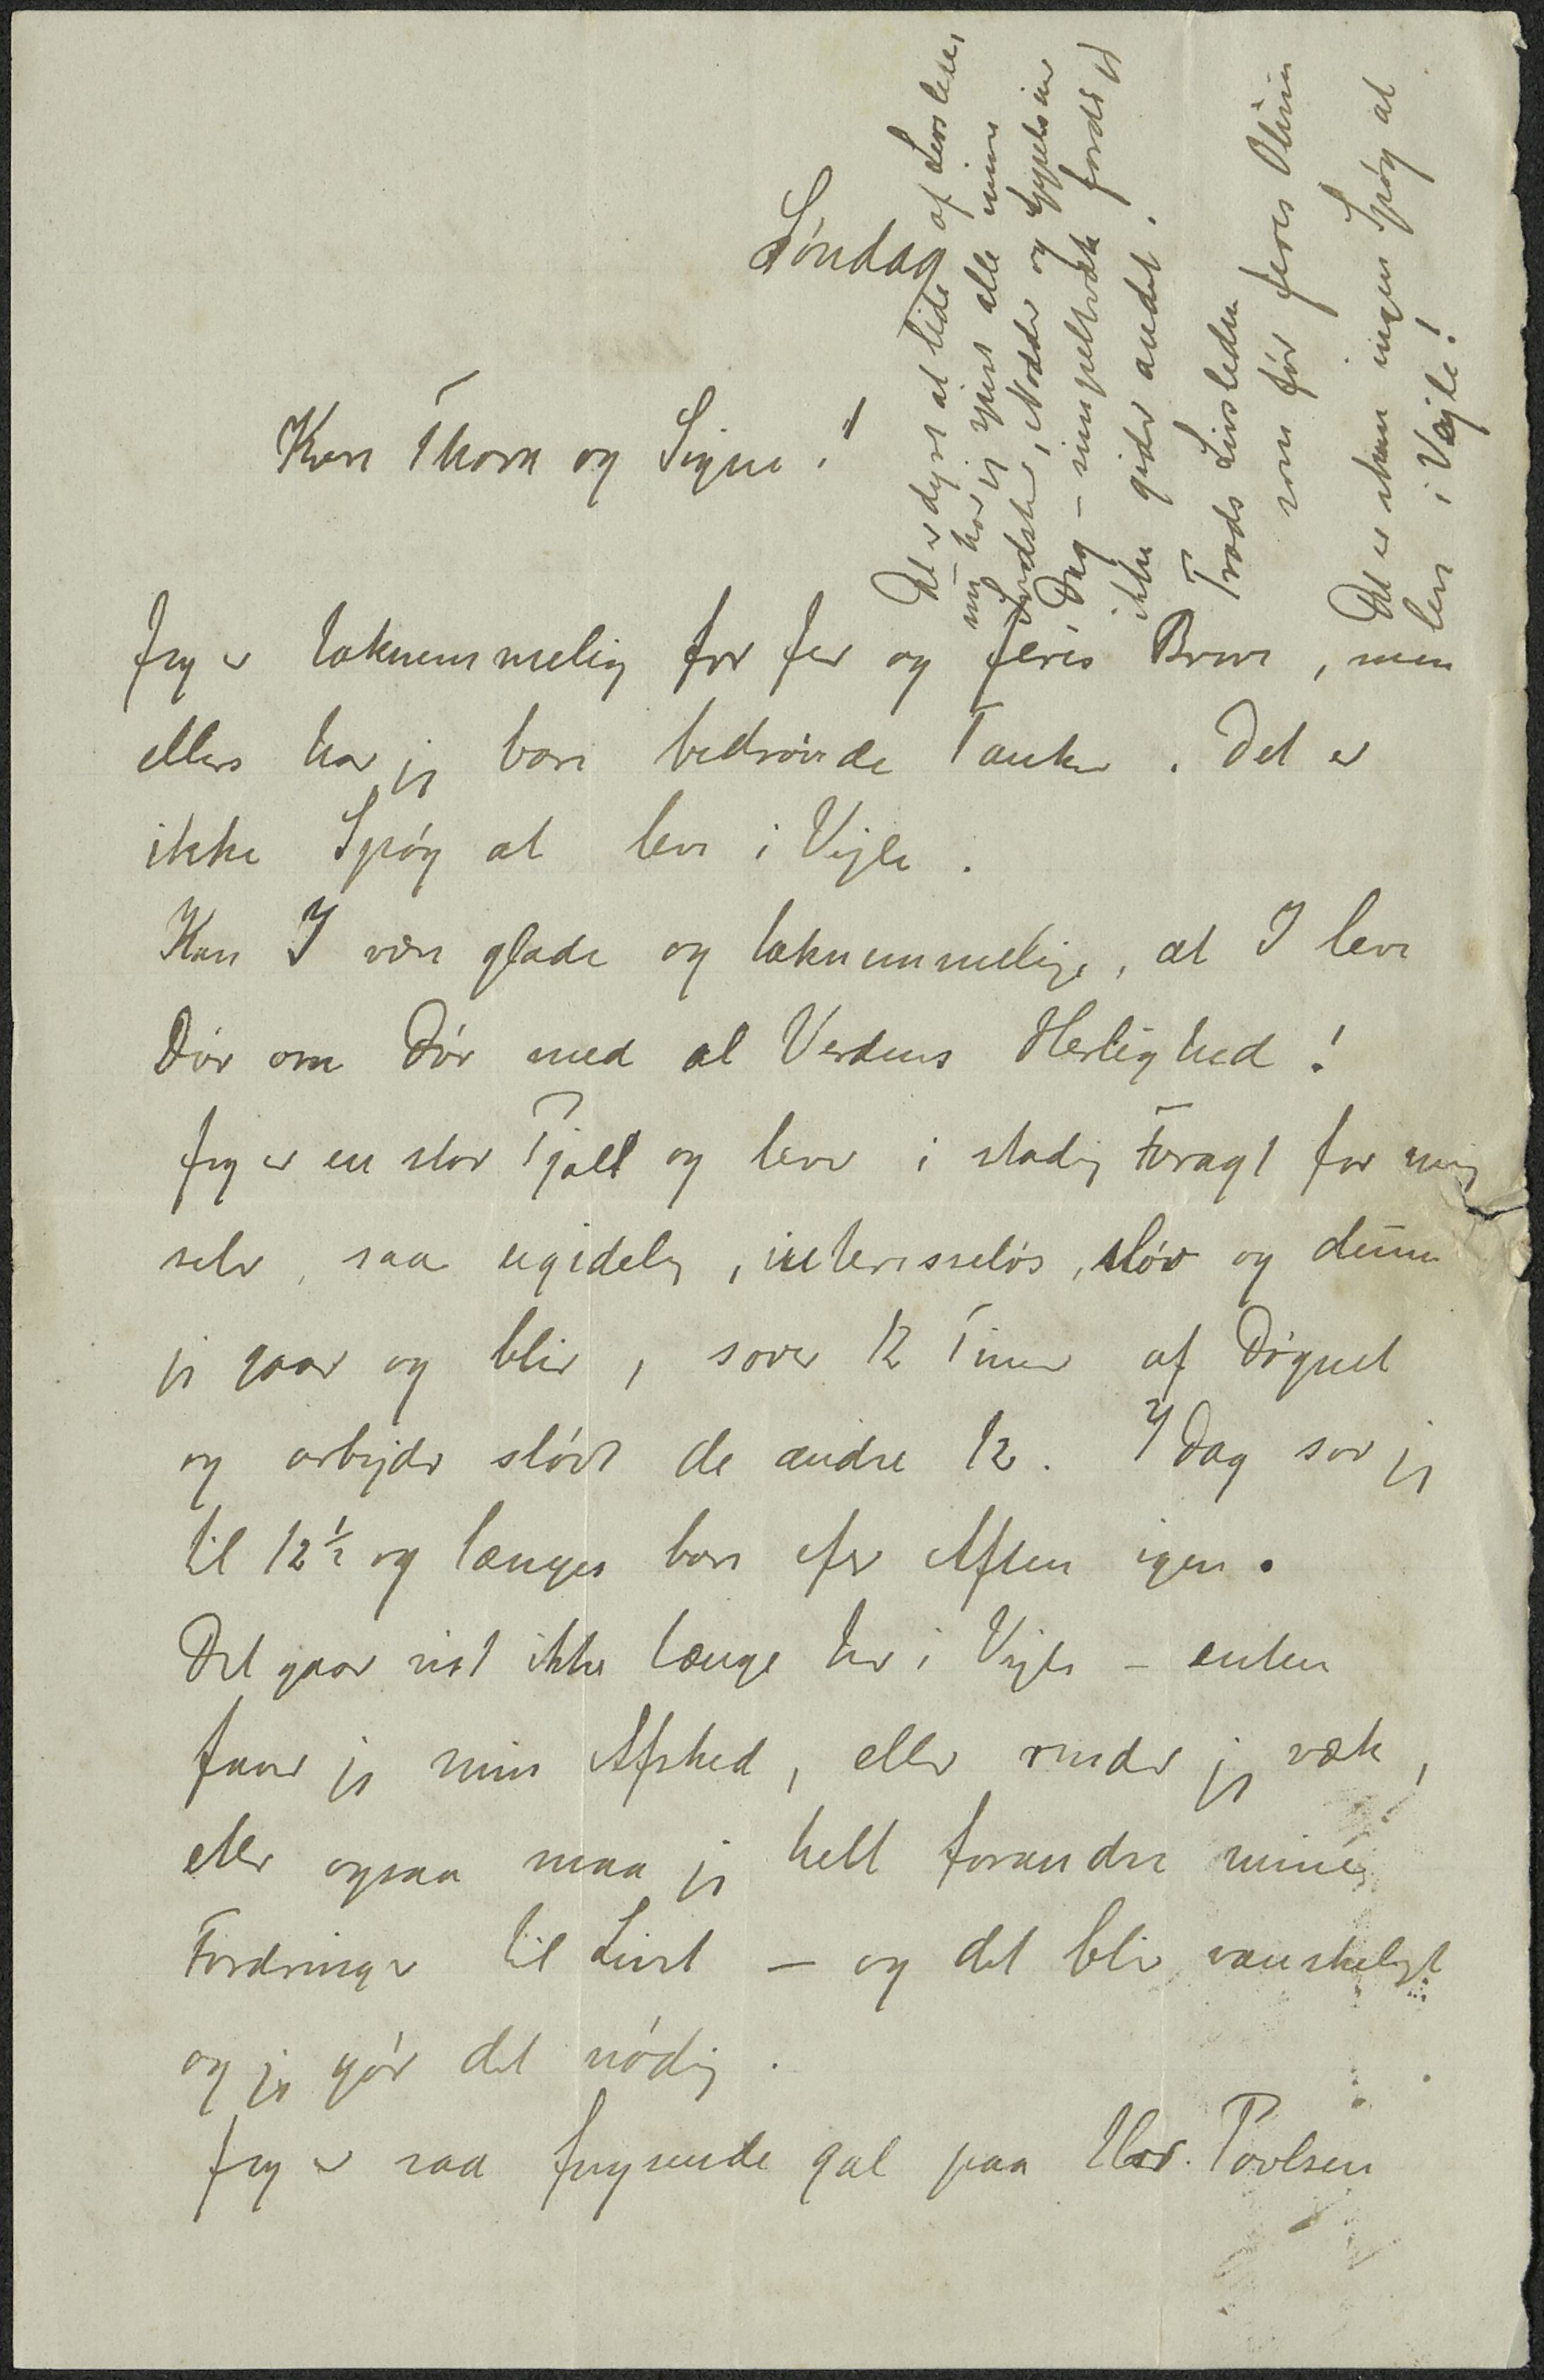 Søndag
Kære Thora og Signe!
Jeg er taknemmelig for Jer og Jeres Breve, men
ellers har jeg bare bedrøvede Tanker. Det er
ikke Spøg at leve i Vejle.
Kan I være glade og taknemmelige, at I leve
Dør om Dør med al Verdens Herlighed!
Jeg er en stor Tjalt og lever i stadig Foragt for mig
selv, saa ugidelig, interesseløs, sløv og dum
jeg gaar og blir, sover 12 Timer af Døgnet
og arbejder sløvt de andre 12. I Dag sov jeg
til 12½ og længes bare efter Aften igen.
Det gaar vist ikke længe her i Vejle - enten
faar jeg min Afsked, eller render jeg væk,
eller ogsaa maa jeg helt forandre mine
Fordringer til Livet - og det blir vanskeligt
og jeg gør det nødig.
Jeg er saa frygtende gal paa Chr. Povlsen
Det er dyrt at lide af Livslede,
nu har jeg spist alle mine
Nødder og Appelsiner
i Dag - simpelthen fordi jeg
ikke gider andet.
Trods Livsleden
som før Jeres Oline
Det er skam ingen Spøg at
leve i Vejle!